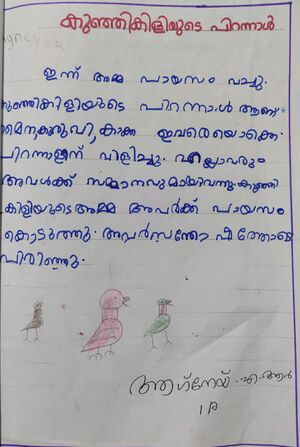 കുഞ്ഞികിളിയുടെ പിറന്നാൾ
ഇന്ന് അമ്മ പായസം വച്ചു.
കുഞ്ഞികിളിയുടെ പിറന്നാൾ ആണ്
മൈനകുരുവി, കാക്ക ഇവരെയൊക്കെ
പിറന്നാളിന് വിളിച്ചു. എല്ലാവരും
അവൾക്ക് സമ്മാനവുമായിവന്നു. കുഞ്ഞി
കിളിയുടെ അമ്മ അവർക്ക് പായസം
കൊടുത്തു. അവർ സന്തോഷത്തോടെ
പിരിഞ്ഞു.
ആഗ്നേയ്. എ. ആർ